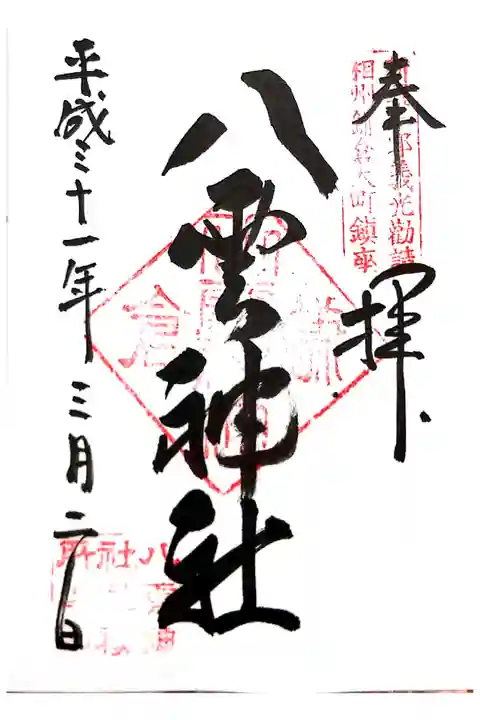 奉拝
郎義光勧請
相州鎌倉大町鎮座
八雲神社
平成三十一年三月二日